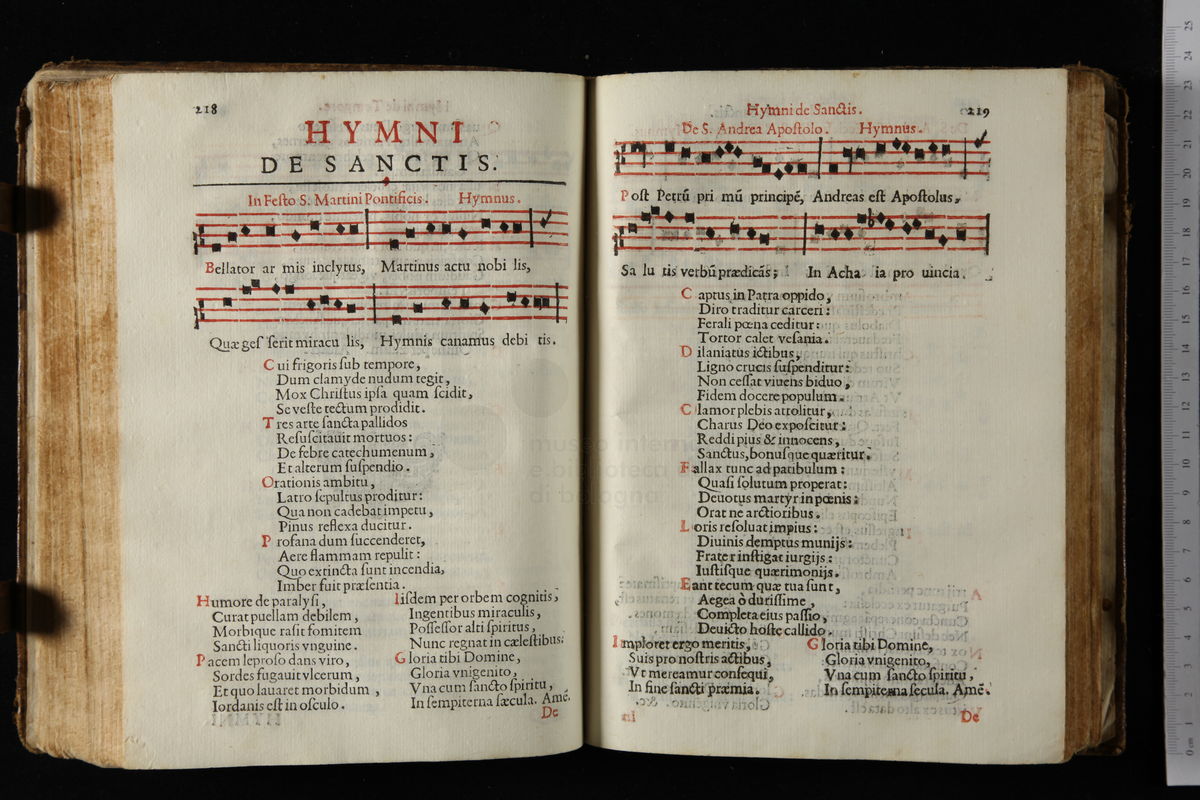 218
HYMNI
DE SANCTIS.
In Festo S. Martini Pontificis. Hymnus.
Bellator ar mis inclytus, Martinus actu nobi lis,
Quæ gef serit miracu lis, Hymnis canamus debi tis.
Cui frigoris sub tempore,
Dum clamyde nudum tegit,
Mox Christus ipsa quam scidit,
Se veste tectum prodidit.
Tres arte sancta pallidos
Resuscitauit mortuos:
De febre catechumenum,
Et alterum suspendio.
Orationis ambitu,
Latro sepultus proditur:
Qua non cadebat impetu,
Pinus reflexa ducitur.
Profana dum succenderet,
Aere flammam repulit:
Quo extincta sunt incendia,
Imber fuit præsentia.
Humore de paralysi,
Curat puellam debilem,
Morbique rasit fomitem
Sancti liquoris vnguine.
Pacem leproso dans viro,
Sordes fugauit vlcerum,
Et quo lauaret morbidum,
Iordanis est in osculo.
Iisdem per orbem cognitis,
Ingentibus miraculis,
Possessor alti spiritus,
Nunc regnat in cælestibus.
Gloria tibi Domine,
Gloria vnigenito,
Vna cum sancto spiritu,
In sempiterna sæcula. Amē.
De
Hymni de Sanctis. 219
De S. Andrea Apostolo. Hymnus.
Post Petrū pri mū principē, Andreas est Apostolus,
Sa lu tis verbū prædicās; In Acha ia pro uincia.
Captus in Patra oppido,
Diro traditur carceri:
Ferali pœna ceditur:
Tortor calet vesania.
Dilaniatus ictibus,
Ligno crucis suspenditur:
Non cessat viuens biduo,
Fidem docere populum.
Clamor plebis attolitur,
Charus Deo exposcitur:
Reddi pius & innocens,
Sanctus, bonusque quæritur.
Fallax tunc ad patibulum:
Quasi solutum properat:
Deuotus martyr in pœnis:
Orat ne arctioribus.
Loris resoluat impius:
Diuinis demptus munijs:
Frater instigat iurgijs:
Iustisque quærimonijs.
Eant tecum quæ tua sunt,
Aegea ò durissime,
Completa eius passio,
Deuicto hoste callido.
Imploret ergo meritis,
Suis pro nostris actibus,
Vt mereamur consequi,
In fine sancti præmia.
Gloria tibi Domine,
Gloria vnigenito,
Vna cum sancto spiritu,
In sempiterna secula. Amē.
De